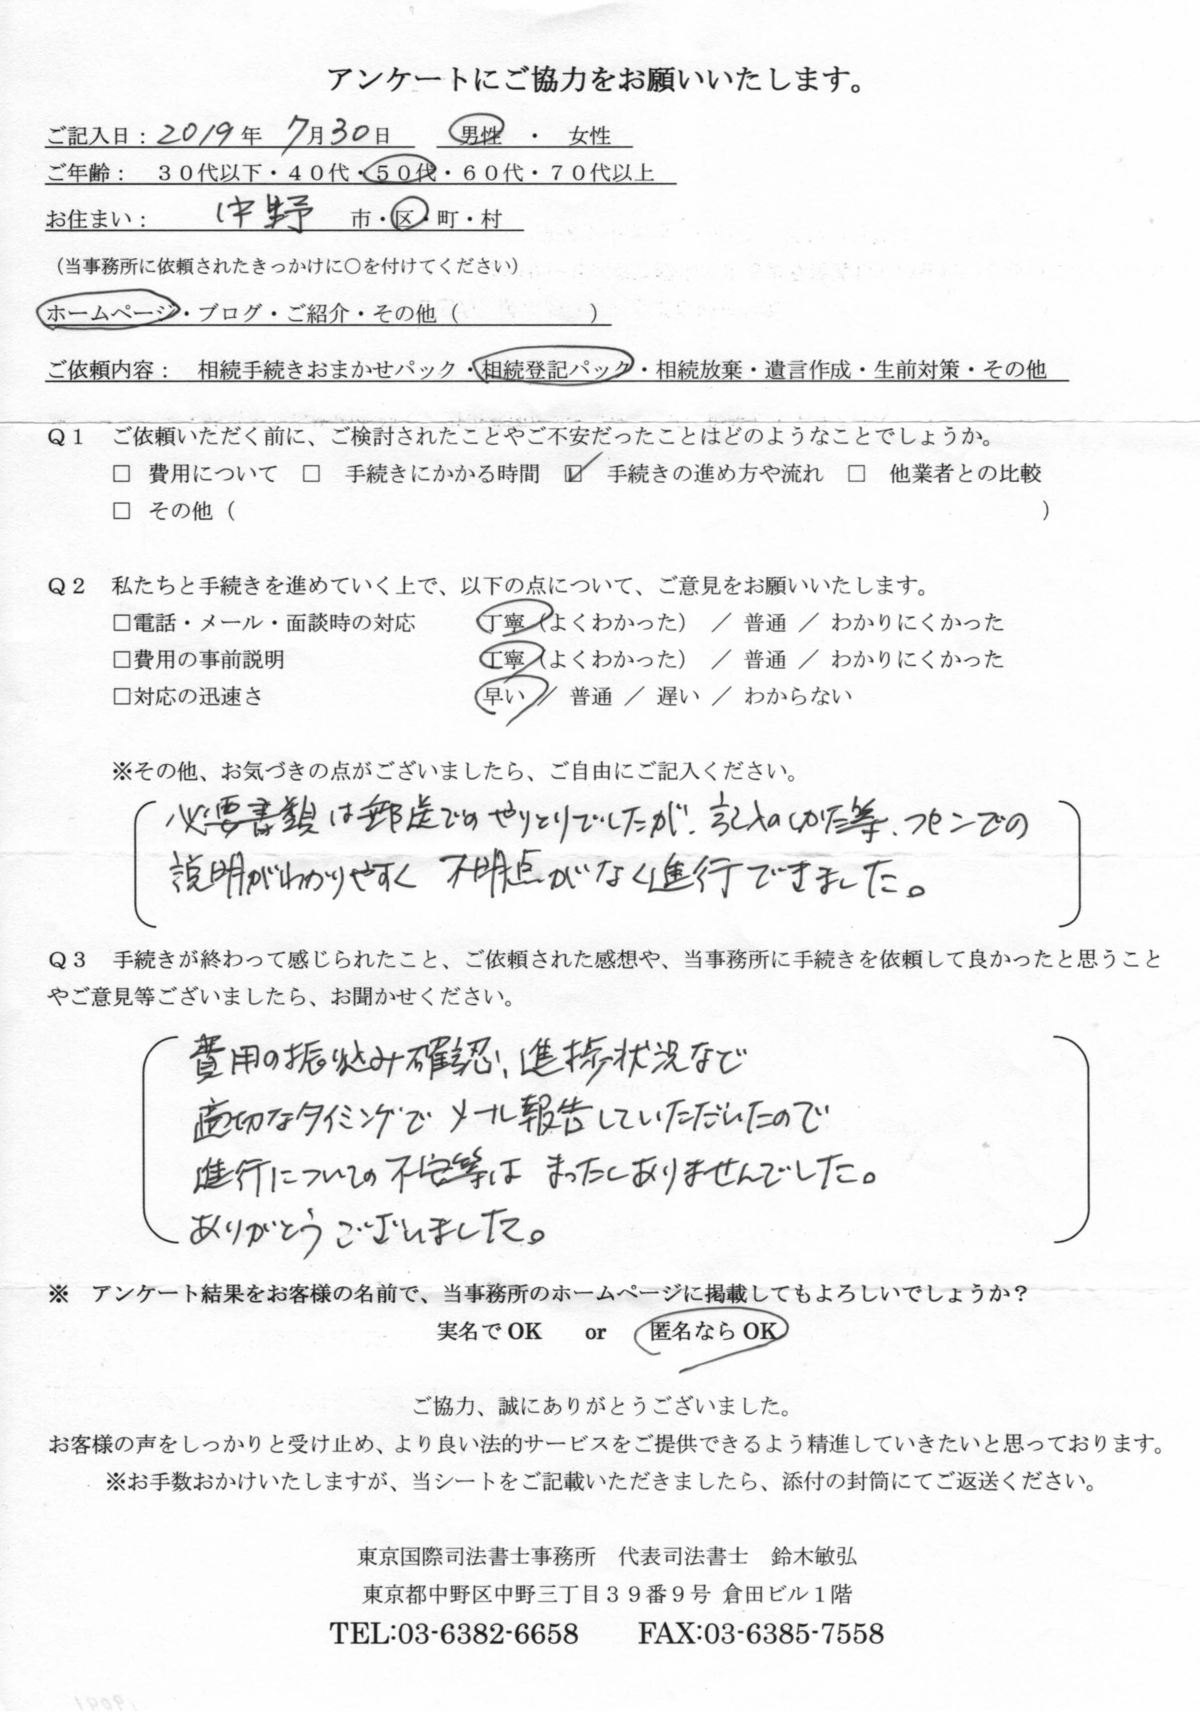 アンケートにご協力をお願いいたします。
ご記入日：2019年 7月30日　男性　・　女性
ご年齢：　３０代以下・４０代・５０代・６０代・７０代以上
お住まい：　中野　市・区・町・村
（当事務所に依頼されたきっかけに○を付けてください）
ホームページ・ブログ・ご紹介・その他（　　　　　　）
ご依頼内容：　相続手続きおまかせパック・相続登記パック・相続放棄・遺言作成・生前対策・その他
Ｑ１　ご依頼いただく前に、ご検討されたことやご不安だったことはどのようなことでしょうか。
□ 費用について　□ 手続きにかかる時間　☑ 手続きの進め方や流れ　□ 他業者との比較
□ その他（　　　　　　　　　　）
Ｑ２　私たちと手続きを進めていく上で、以下の点について、ご意見をお願いいたします。
□電話・メール・面談時の対応　丁寧（よくわかった） ／ 普通 ／ わかりにくかった
□費用の事前説明　丁寧（よくわかった） ／ 普通 ／ わかりにくかった
□対応の迅速さ　早い ／ 普通 ／ 遅い ／ わからない
※その他、お気づきの点がございましたら、ご自由にご記入ください。
必要書類は郵送でのやりとりでしたが、記入のしかた等、フセンでの
説明がわかりやすく 不明点がなく進行できました。
Ｑ３　手続きが終わって感じられたこと、ご依頼された感想や、当事務所に手続きを依頼して良かったと思うこと
やご意見等ございましたら、お聞かせください。
費用の振り込み確認、進捗状況など
適切なタイミングで メール報告していただいたので
進行についての不安等は まったくありませんでした。
ありがとうございました。
※　アンケート結果をお客様の名前で、当事務所のホームページに掲載してもよろしいでしょうか？
実名でOK　or　匿名ならOK
ご協力、誠にありがとうございました。
お客様の声をしっかりと受け止め、より良い法的サービスをご提供できるよう精進していきたいと思っております。
※お手数おかけいたしますが、当シートをご記載いただきましたら、添付の封筒にてご返送ください。
東京国際司法書士事務所　代表司法書士　鈴木敏弘
東京都中野区中野三丁目３９番９号 倉田ビル１階
TEL:03-6382-6658　FAX:03-6385-7558